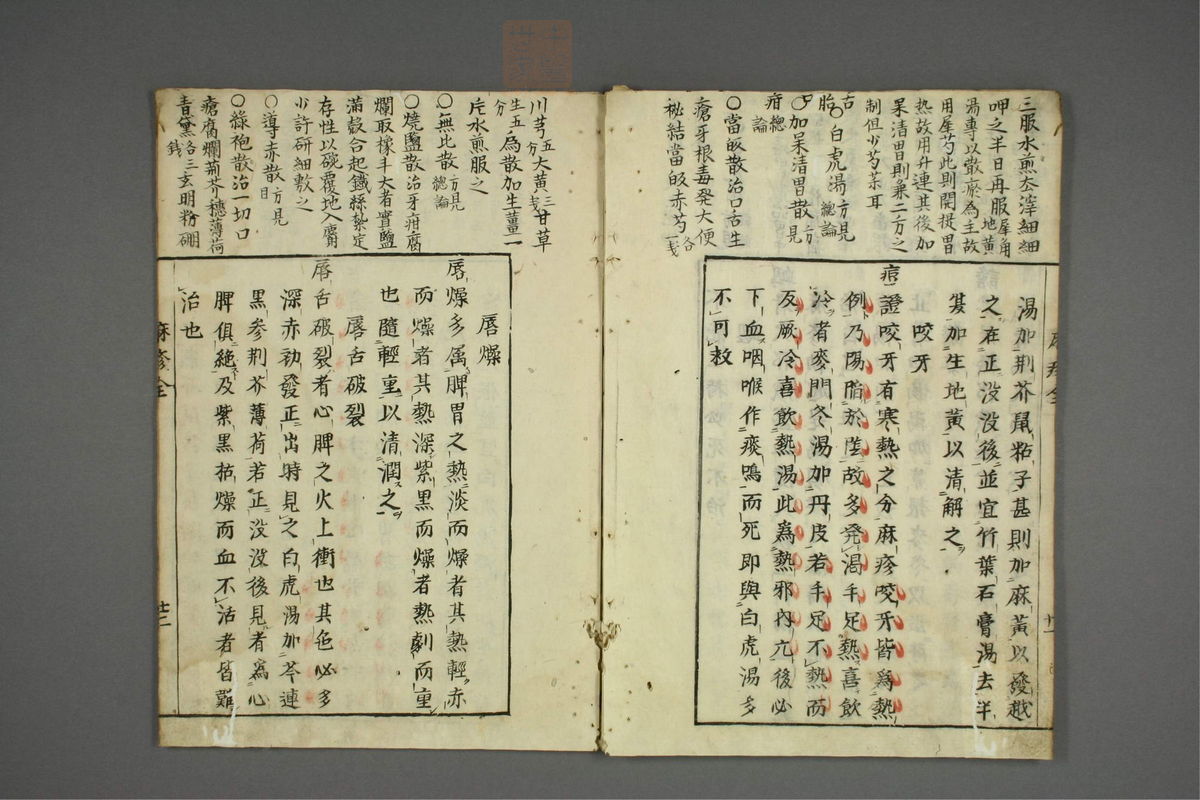 三服水煎去滓細細
呷之半日再服犀角地黄
湯專以散瘀為主故
用犀芍此則開提胃
热故用升連其後加
呆清胃則兼二方之
制但少芍茶耳
舌
胎〇白虎湯方見總論
〇加呆清胃散方見
疳總論
〇當皈散治口舌生
瘡牙根毒発大便
秘結當皈赤芍各一戔
湯加荆芥鼠粘子甚則加麻黃以發越
之在正没没後並宜竹葉石膏湯去半
夏加生地黃以清解之
咬牙
痘證咬牙有寒熱之分麻疹咬牙皆爲熱
例乃陽脂於陰故多発渴手足熱喜飲
冷者麥門冬湯加丹皮若手足不熱而
反厥冷喜飲熱湯此爲熱邪內亢後必
下血咽喉作痰鳴而死即與白虎湯多
不可救
麻疹全
川芎五分大黄三戔甘草
生五分爲散加生薑一
片水煎服之
〇無比散方見總論
〇燒鹽散治牙疳腐
爛取橡斗大者實鹽
滿殼合起鐵絲紮定
存性以碗覆地入麝
少許研細敷之
〇導赤散方見目
〇綠袍散治一切口
瘡腐爛荊芥穗薄荷
青黛各三錢玄明粉硼
唇燥
唇燥多属脾胃之熱淡而燥者其熱輕赤
而燥者其熱深紫黑而燥者熱劇而重
也隨輕重以清潤之
唇舌破裂
唇舌破裂者心脾之火上衝也其色必多
深赤初發正出時見之白虎湯加芩連
黑参荆芥薄荷若正没没後見者爲心
脾俱絶及紫黑枯燥而血不活者皆難
治也
麻疹全
廿二